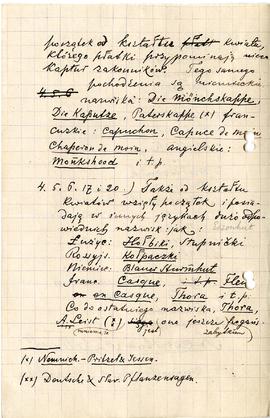 początek od kształtu kwiatu,
którego płatki przypominają nieco
kaptur zakonników. Tego samego
pochodzenia są niemieckie
4.5.6. nazwiska: Die Mönchskappe,
Die Kaputze, Paterskappe (x) fran-
cuzkie: capuchon, Capuce de moin
Chaperon de moin, angielskie:
Monkshood i t.p.
4.5.6.17 i 20.) Także od kształtu
kwiatów wzięły początek i posia-
dają w innych językach dużo odpo-
wiednich nazwisk jak:
Łużyc: Hołbiki, stupnički
Rossyjs. Kołpaczki
Niemiec: Blauer Sturmhut
franc. Casque,
en casque, Thora i t.p.
Co do ostatniego nazwiska, Thora,
A. Leist (xx) one jeszcze pogańs.
mniema jest zabytkiem
(x) Nemnich - Pritzel & Jessen.
(xx) Deutsche & slav. Pflanzensagen.